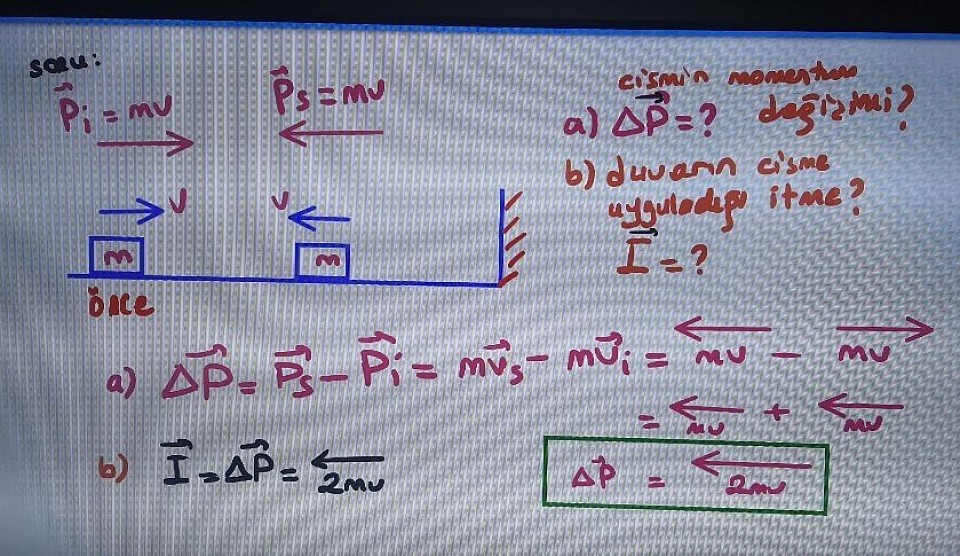 soru:
P⃗i = mv
P⃗s = mv
v
v
m
m
önce
cismin momentum
değişimi?
a) ΔP⃗ = ?
b) duvarın cisme
uyguladığı itme?
I⃗ = ?
a) ΔP⃗ = P⃗s - P⃗i = mv⃗s - mv⃗i = mv - mv
= mv + mv
ΔP⃗ = 2mv
b) I⃗ = ΔP⃗ = 2mv